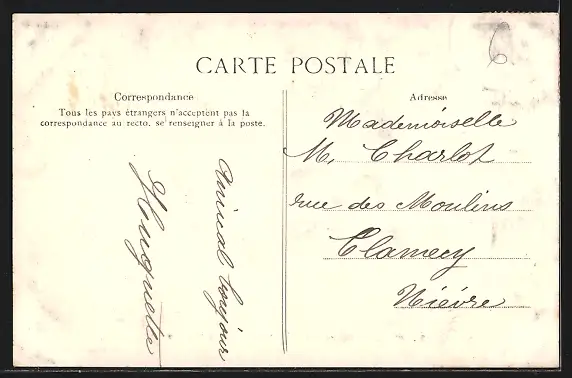 6
CARTE POSTALE
Correspondance
Tous les pays étrangers n'acceptent pas la
correspondance au recto, se renseigner à la poste.
Amical bonjour
Huguette
Adresse
Mademoiselle
M. Charlot
rue des Moulins
Clamecy
Nièvre